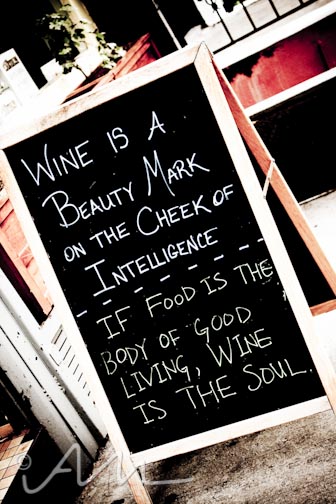 WINE IS A
BEAUTY MARK
ON THE CHEEK OF
INTELLIGENCE
IF FOOD IS THE
BODY OF GOOD
LIVING, WINE
IS THE SOUL.